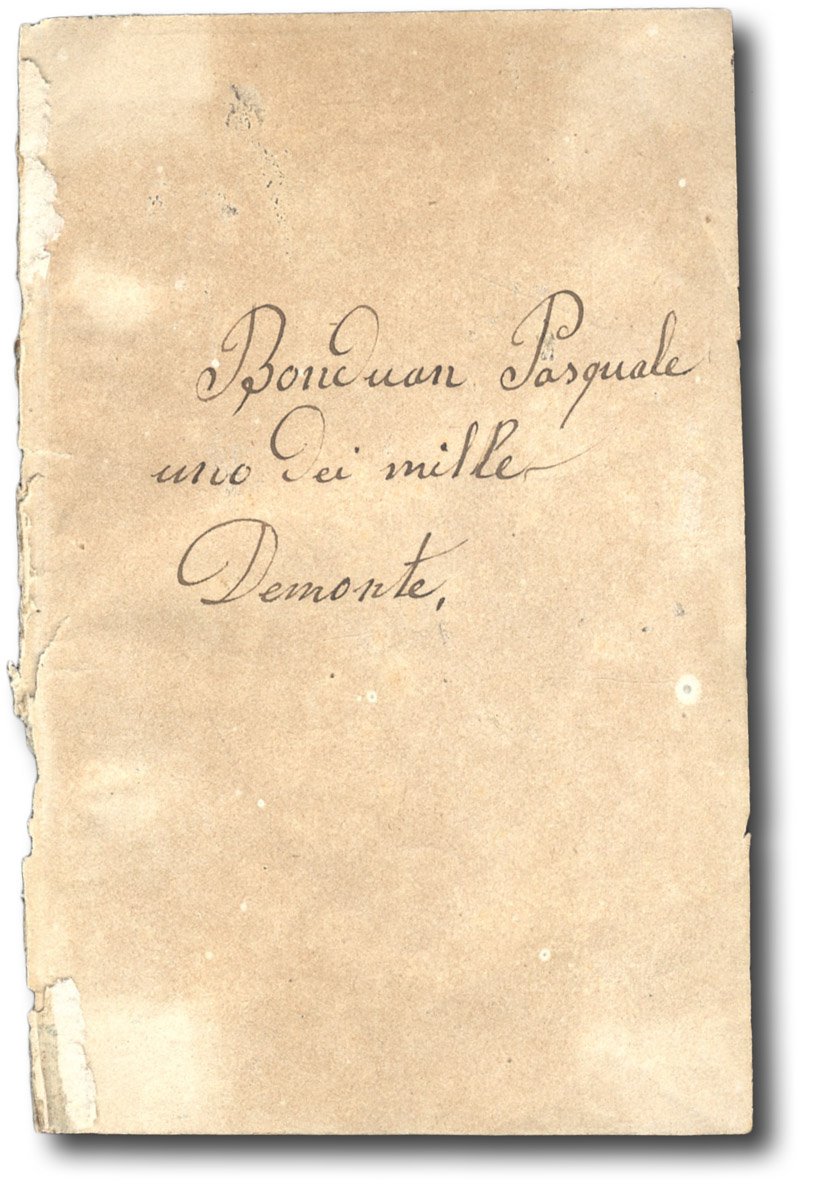 Bonduan Pasquale
uno dei mille
Demonte,